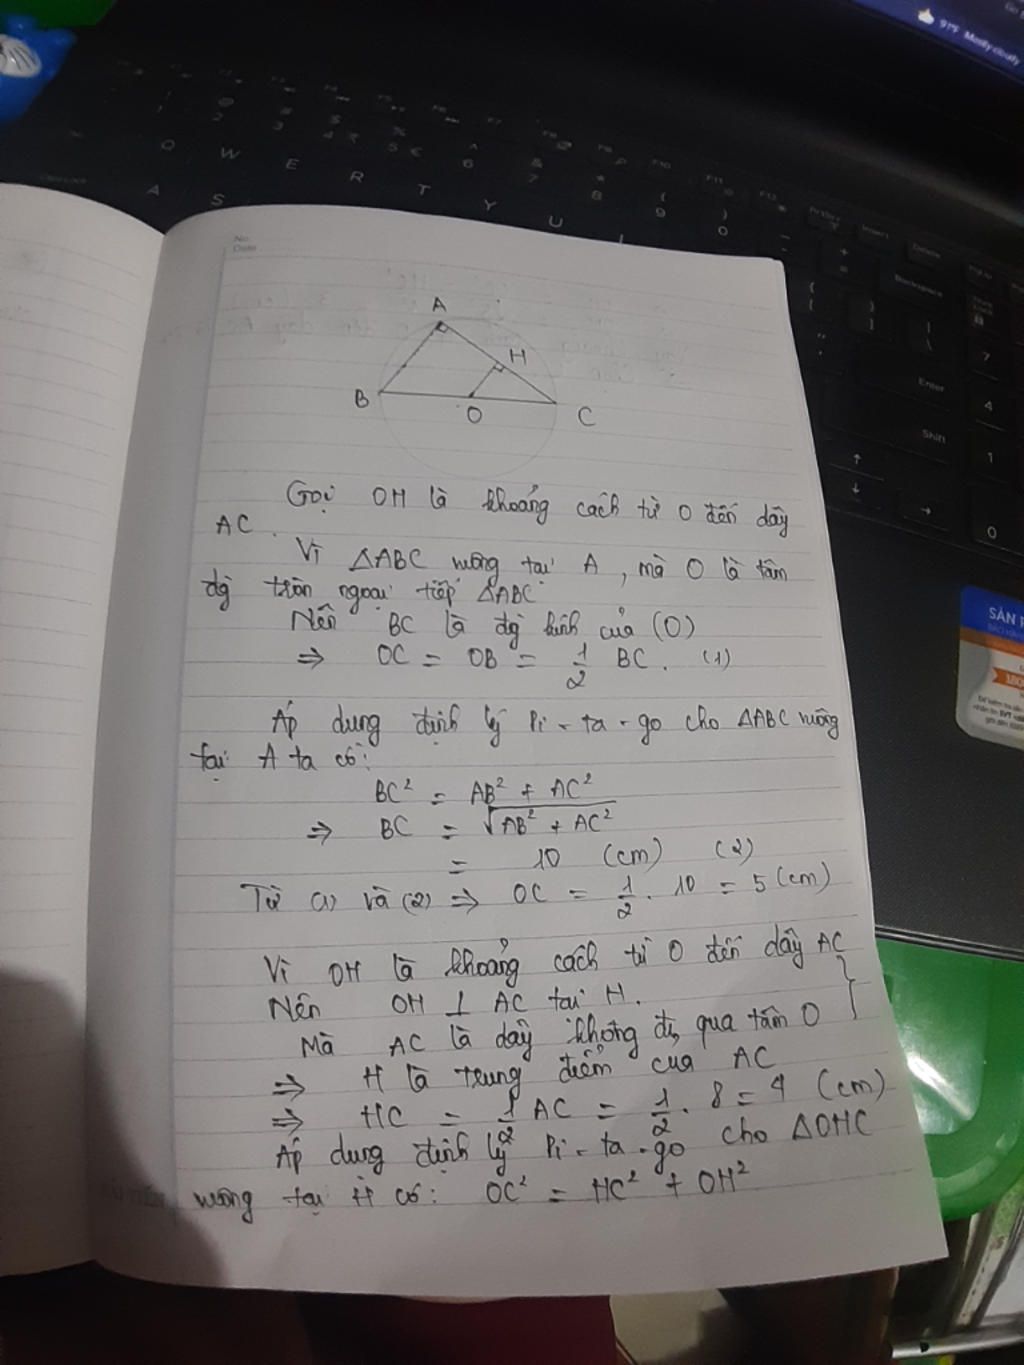 97°F Mostly cloudy
Q W E R T Y U
A S
Backspace
Enter
Shift
7
4
1
0
SẢN
No.
Date
A
H
B
O
C
Gọi OH là khoảng cách từ O đến dây
AC.
Vì ΔABC vuông tại A, mà O là tâm
đg tròn ngoại tiếp ΔABC
Nên BC là đg kính của (O)
⇒ OC = OB = 1/2 BC. (1)
Áp dụng định lý Pi-ta-go cho ΔABC vuông
tại A ta có:
BC² = AB² + AC²
⇒ BC = √(AB² + AC²)
= 10 (cm) (2)
Từ (1) và (2) ⇒ OC = 1/2 . 10 = 5 (cm)
Vì OH là khoảng cách từ O đến dây AC
Nên OH ⊥ AC tại H.
Mà AC là dây không đi qua tâm O
⇒ H là trung điểm của AC
⇒ HC = 1/2 AC = 1/2 . 8 = 4 (cm)
Áp dụng định lý Pi-ta-go cho ΔOHC
vuông tại H có: OC² = HC² + OH²